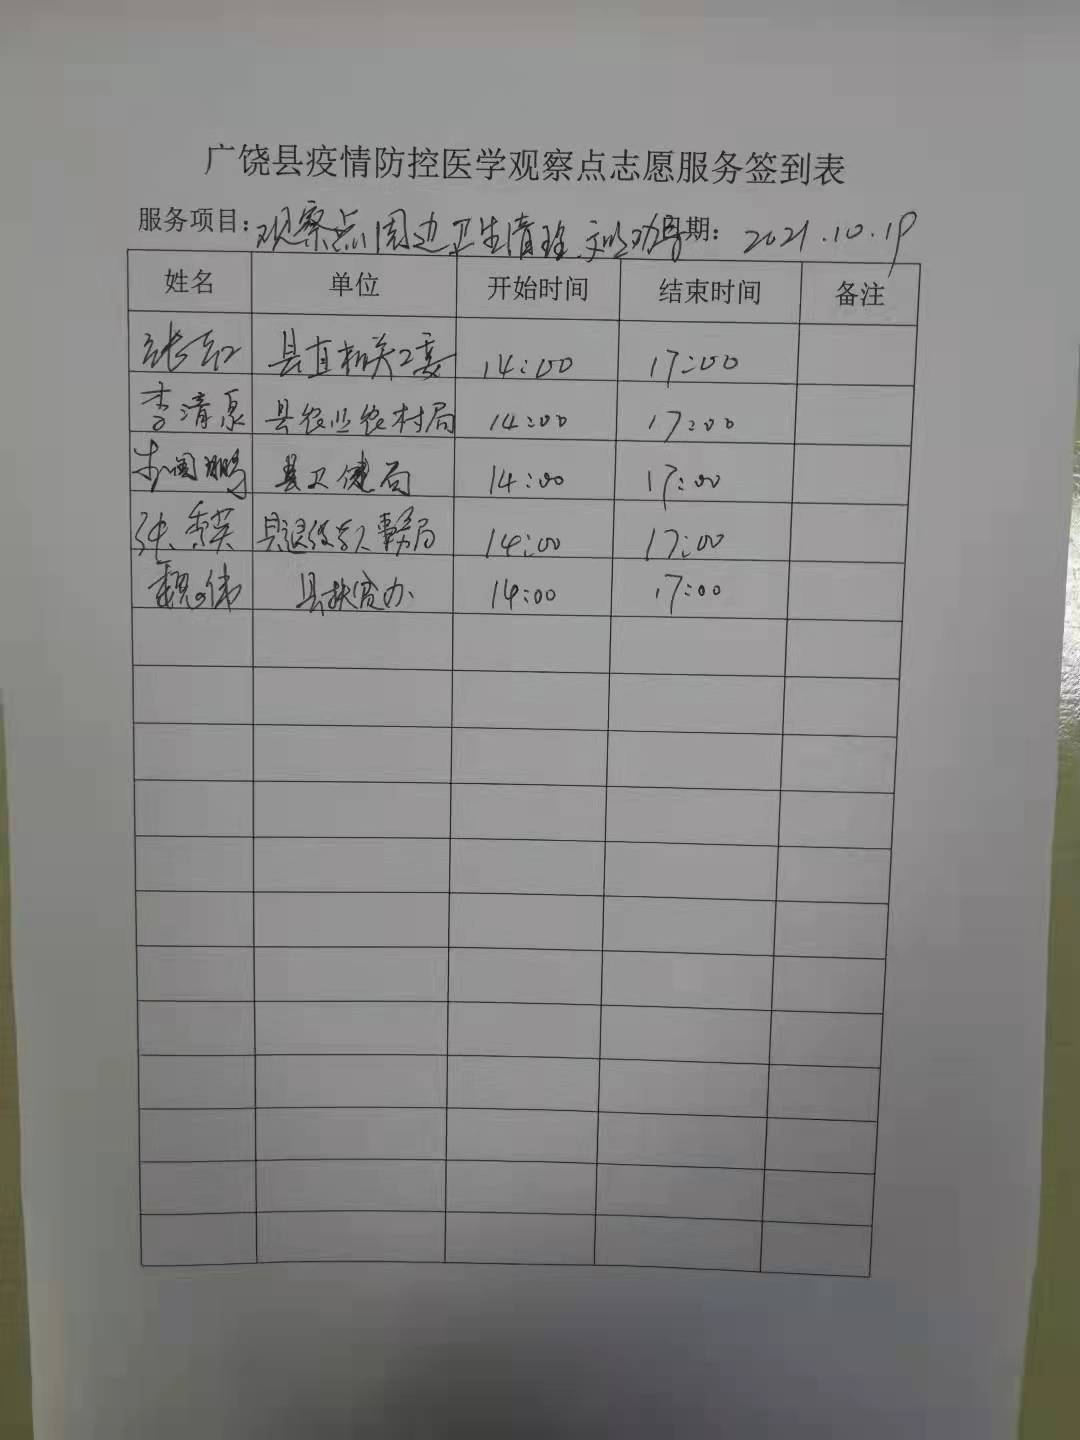 广饶县疫情防控医学观察点志愿服务签到表
服务项目：观察点周边卫生清理、文明劝导 日期：2021.10.19
姓名 单位 开始时间 结束时间 备注
张红 县直机关工委 14:00 17:00
李清泉 县农业农村局 14:00 17:00
县卫健局 14:00 17:00
张秀英 县退役军人事务局 14:00 17:00
魏伟 县扶贫办 14:00 17:00